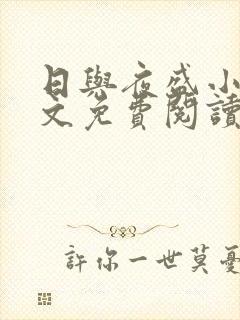 日與夜盛小
文免費閱讀
許你一世莫憂